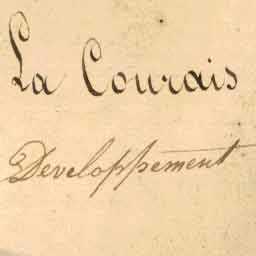 La Courais
Developpement